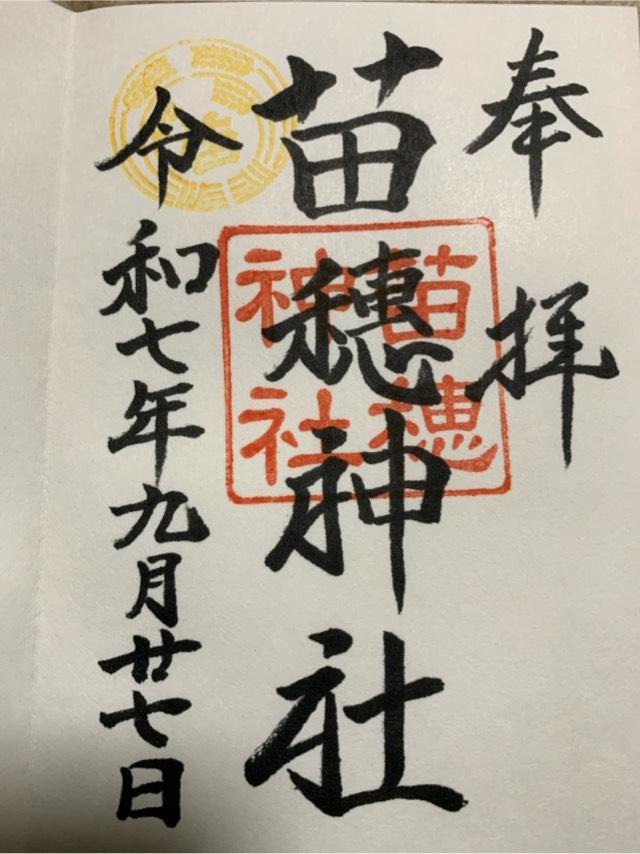 奉拝
苗穂神社
苗穂
神社
令和七年九月廿七日